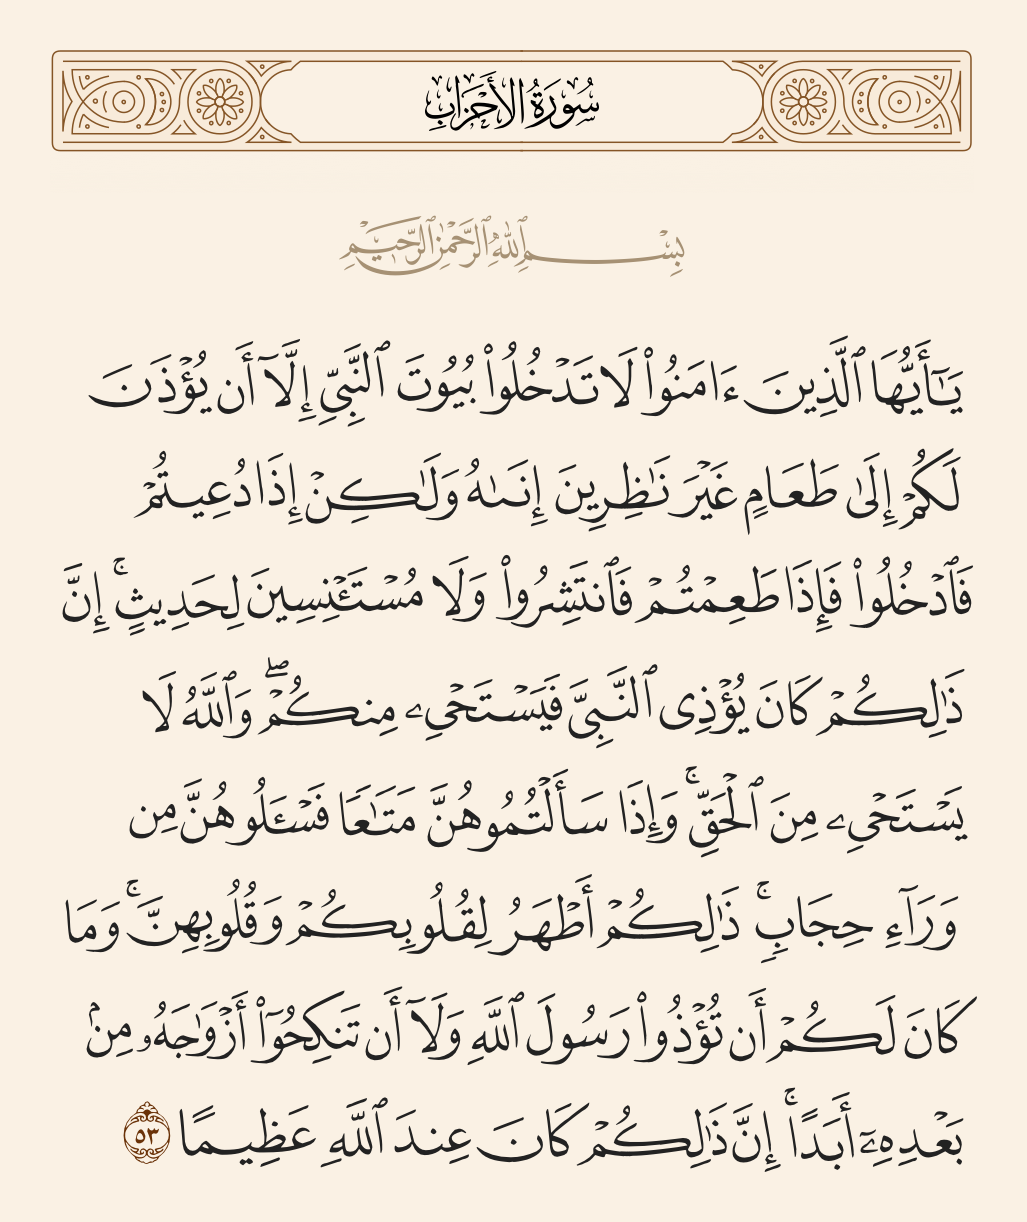 سُورَةُ الأَحْزَابِ
بِسْمِ ٱللَّهِ ٱلرَّحْمَٰنِ ٱلرَّحِيمِ
يَـٰٓأَيُّهَا ٱلَّذِينَ ءَامَنُوا۟ لَا تَدْخُلُوا۟ بُيُوتَ ٱلنَّبِىِّ إِلَّآ أَن يُؤْذَنَ
لَكُمْ إِلَىٰ طَعَامٍ غَيْرَ نَـٰظِرِينَ إِنَىٰهُ وَلَـٰكِنْ إِذَا دُعِيتُمْ
فَٱدْخُلُوا۟ فَإِذَا طَعِمْتُمْ فَٱنتَشِرُوا۟ وَلَا مُسْتَـْٔنِسِينَ لِحَدِيثٍ ۚ إِنَّ
ذَٰلِكُمْ كَانَ يُؤْذِى ٱلنَّبِىَّ فَيَسْتَحْىِۦ مِنكُمْ ۖ وَٱللَّهُ لَا
يَسْتَحْىِۦ مِنَ ٱلْحَقِّ ۚ وَإِذَا سَأَلْتُمُوهُنَّ مَتَـٰعًا فَسْـَٔلُوهُنَّ مِن
وَرَآءِ حِجَابٍ ۚ ذَٰلِكُمْ أَطْهَرُ لِقُلُوبِكُمْ وَقُلُوبِهِنَّ ۚ وَمَا
كَانَ لَكُمْ أَن تُؤْذُوا۟ رَسُولَ ٱللَّهِ وَلَآ أَن تَنكِحُوٓا۟ أَزْوَٰجَهُۥ مِنۢ
بَعْدِهِۦٓ أَبَدًا ۚ إِنَّ ذَٰلِكُمْ كَانَ عِندَ ٱللَّهِ عَظِيمًا ٥٣